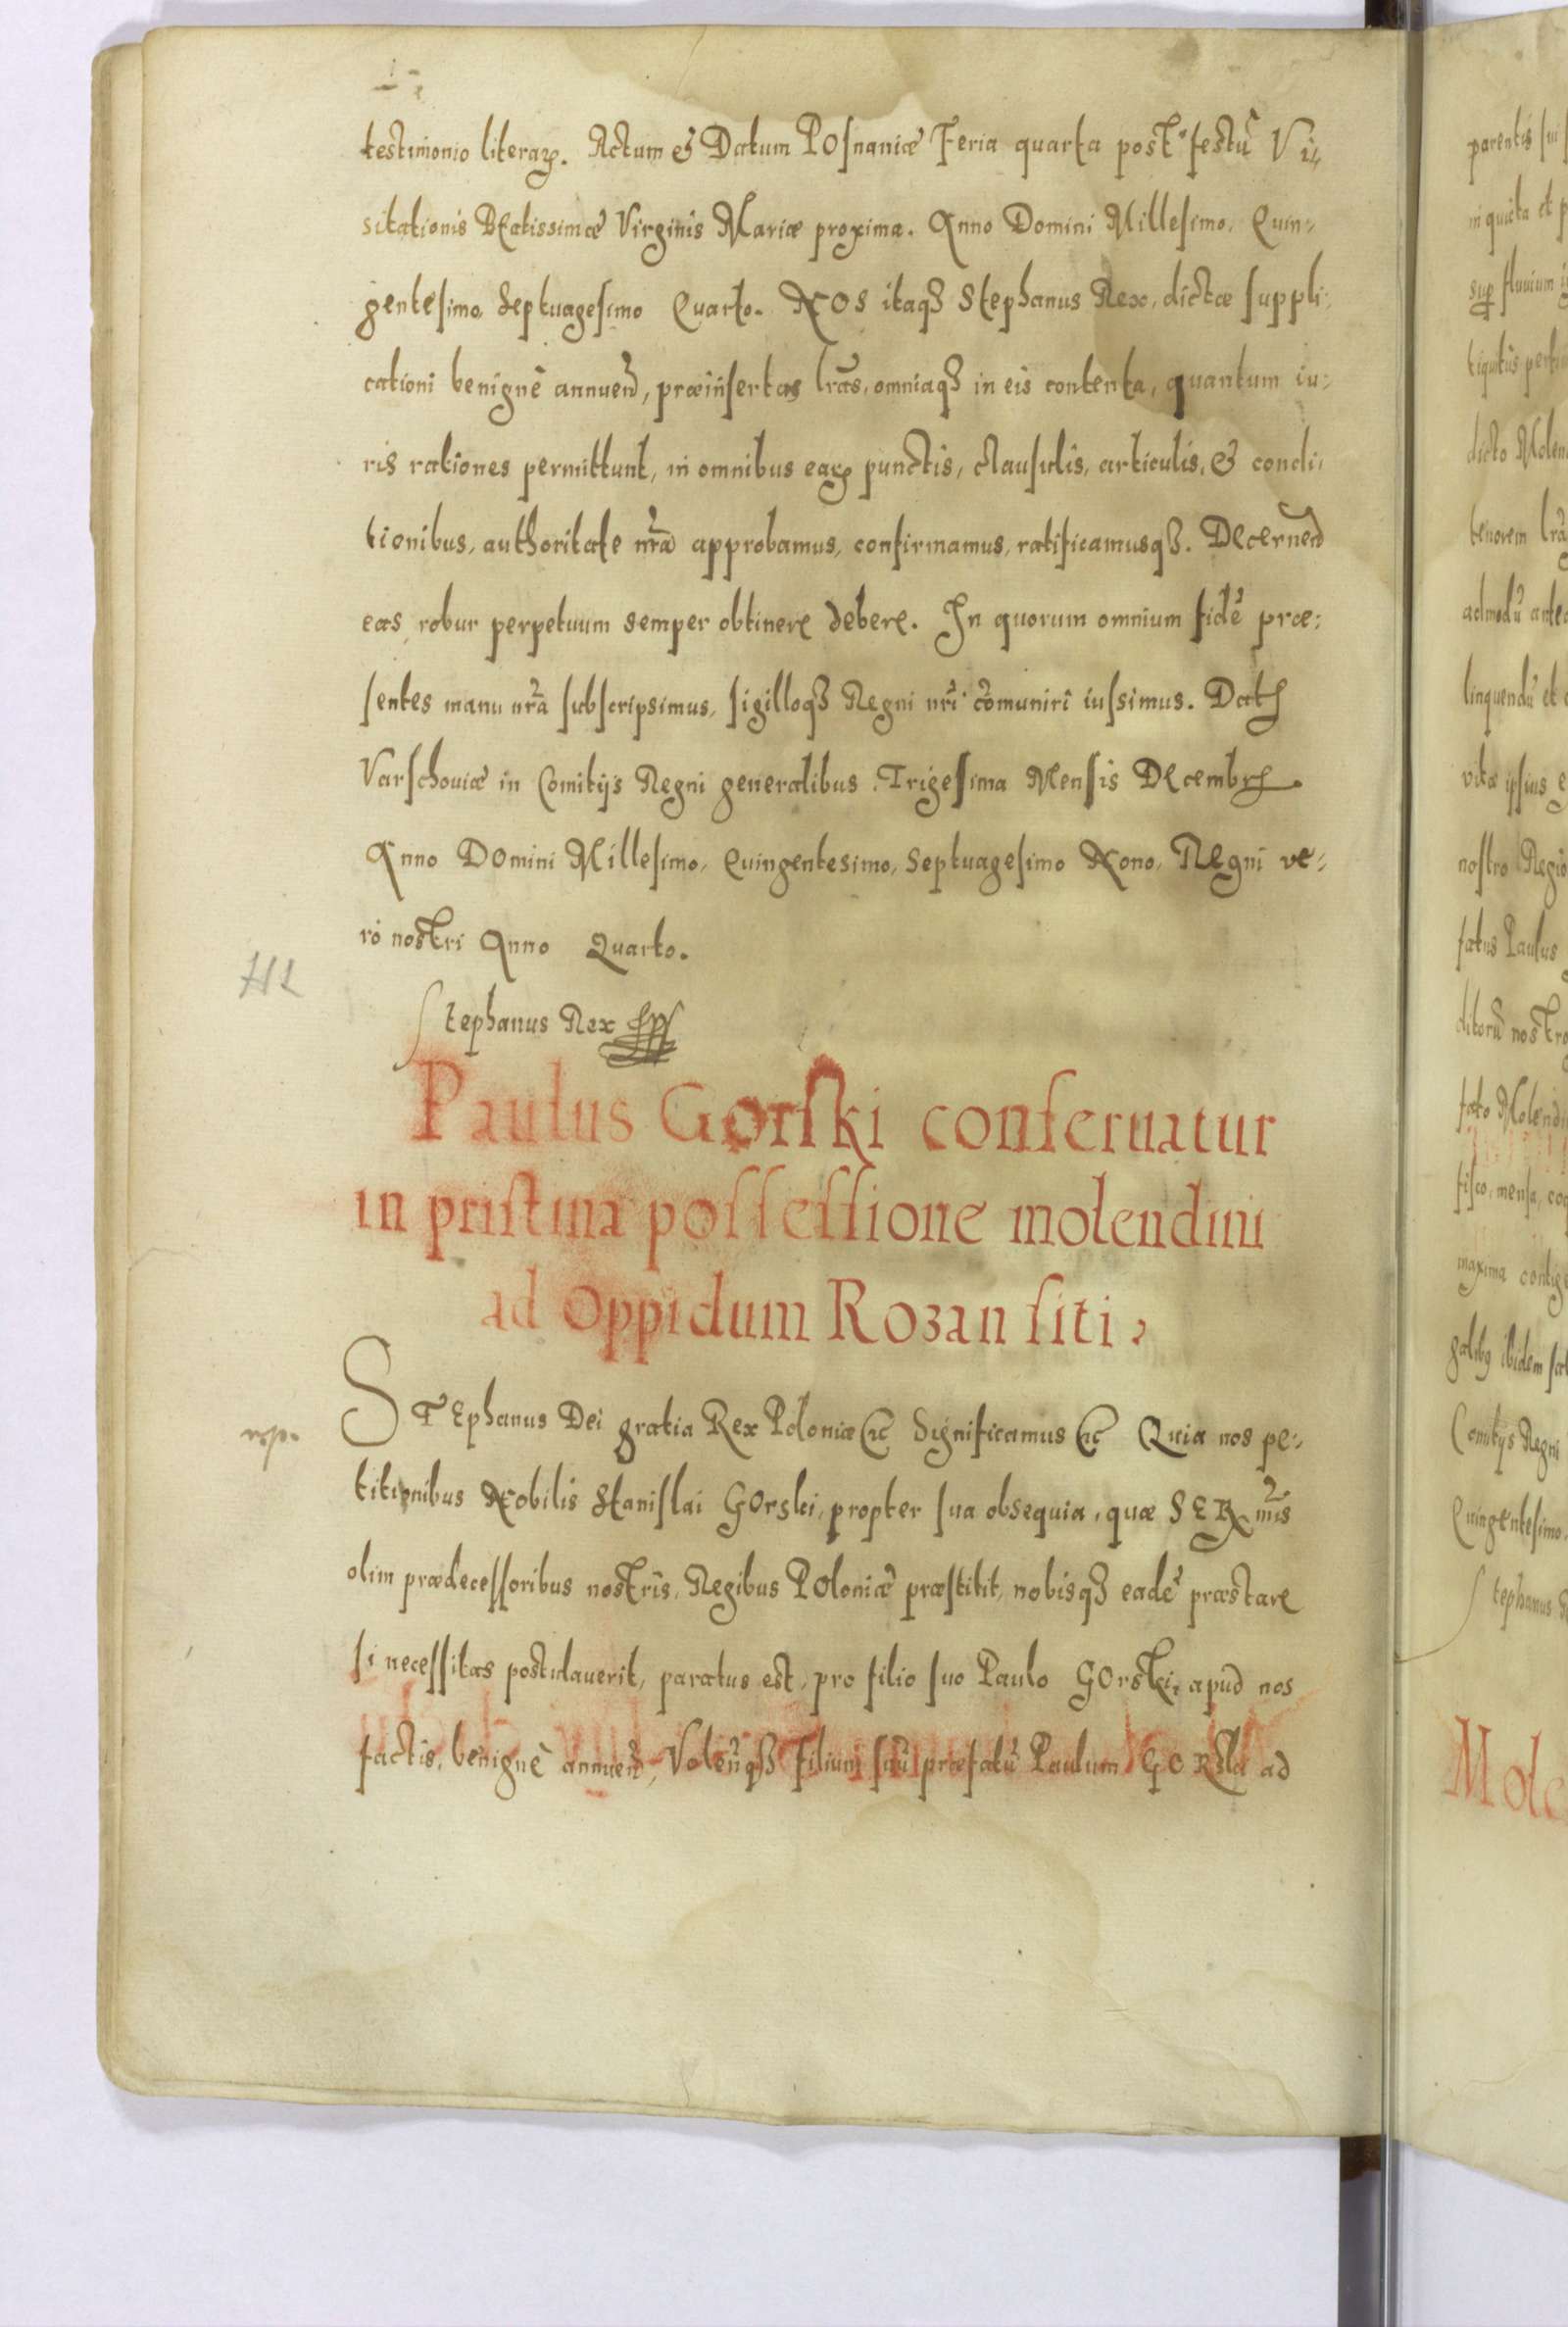 testimonio literaꝝ. Actum & Datum Posnaniæ Feria quarta post festũ Vi-
sitationis Beatissimæ Virginis Mariæ proxima. Anno Domini Millesimo, Quin-
gentesimo, Septuagesimo Quarto. Nos itaqꝫ Stephanus Rex, dictæ suppli-
cationi benignè annueñ, præinsertas lr̃as, omniaqꝫ in eis contenta, quantum iu-
ris rationes permittunt, in omnibus eaꝝ punctis, clausulis, articulis, & condi-
tionibus, authoritate nr̃a approbamus, confirmamus, ratificamusqꝫ. Decerneñ
eas, robur perpetuum semper obtinere debere. In quorum omnium fidẽ præ-
sentes manu nr̃a subscripsimus, sigilloqꝫ Regni nr̃i cõmuniri iussimus. Dat
Varschouiæ in Comitijs Regni generalibus Trigesima Mensis Decembr
Anno Domini Millesimo, Quingentesimo, Septuagesimo Nono, Regni ve-
rò nostri Anno Quarto.
HL
Stephanus Rex
Paulus Gorski conseruatur
in pristina possessione molendini
ad Oppidum Rozan siti,
Stephanus Dei gratia Rex Poloniæ etc Significamus etc Quia nos pe-
titionibus Nobilis Stanislai Gorski, propter sua obsequia, quæ SERmis
olim prædecessoribus nostris, Regibus Poloniæ præstitit, nobisqꝫ eadẽ præstare
si necessitas postulauerit, paratus est, pro filio suo Paulo Gorski, apud nos
factis, benignè annueñ, Voleñqꝫ Filium suũ præfatũ Paulum Gorski ad
parentis sui
in quieta et
suꝑ fluuium
dicto Molen
tenorem lr̃a
admodũ ante
linquendũ et
vitæ ipsius
nostro Regio
fatus Paulus
ditorũ nostro
fato Molendin
fisco, mensa,
maxima contig
galibꝫ ibidem
Comitijs Regni
Quingentesimo,
Stephanus
Mole